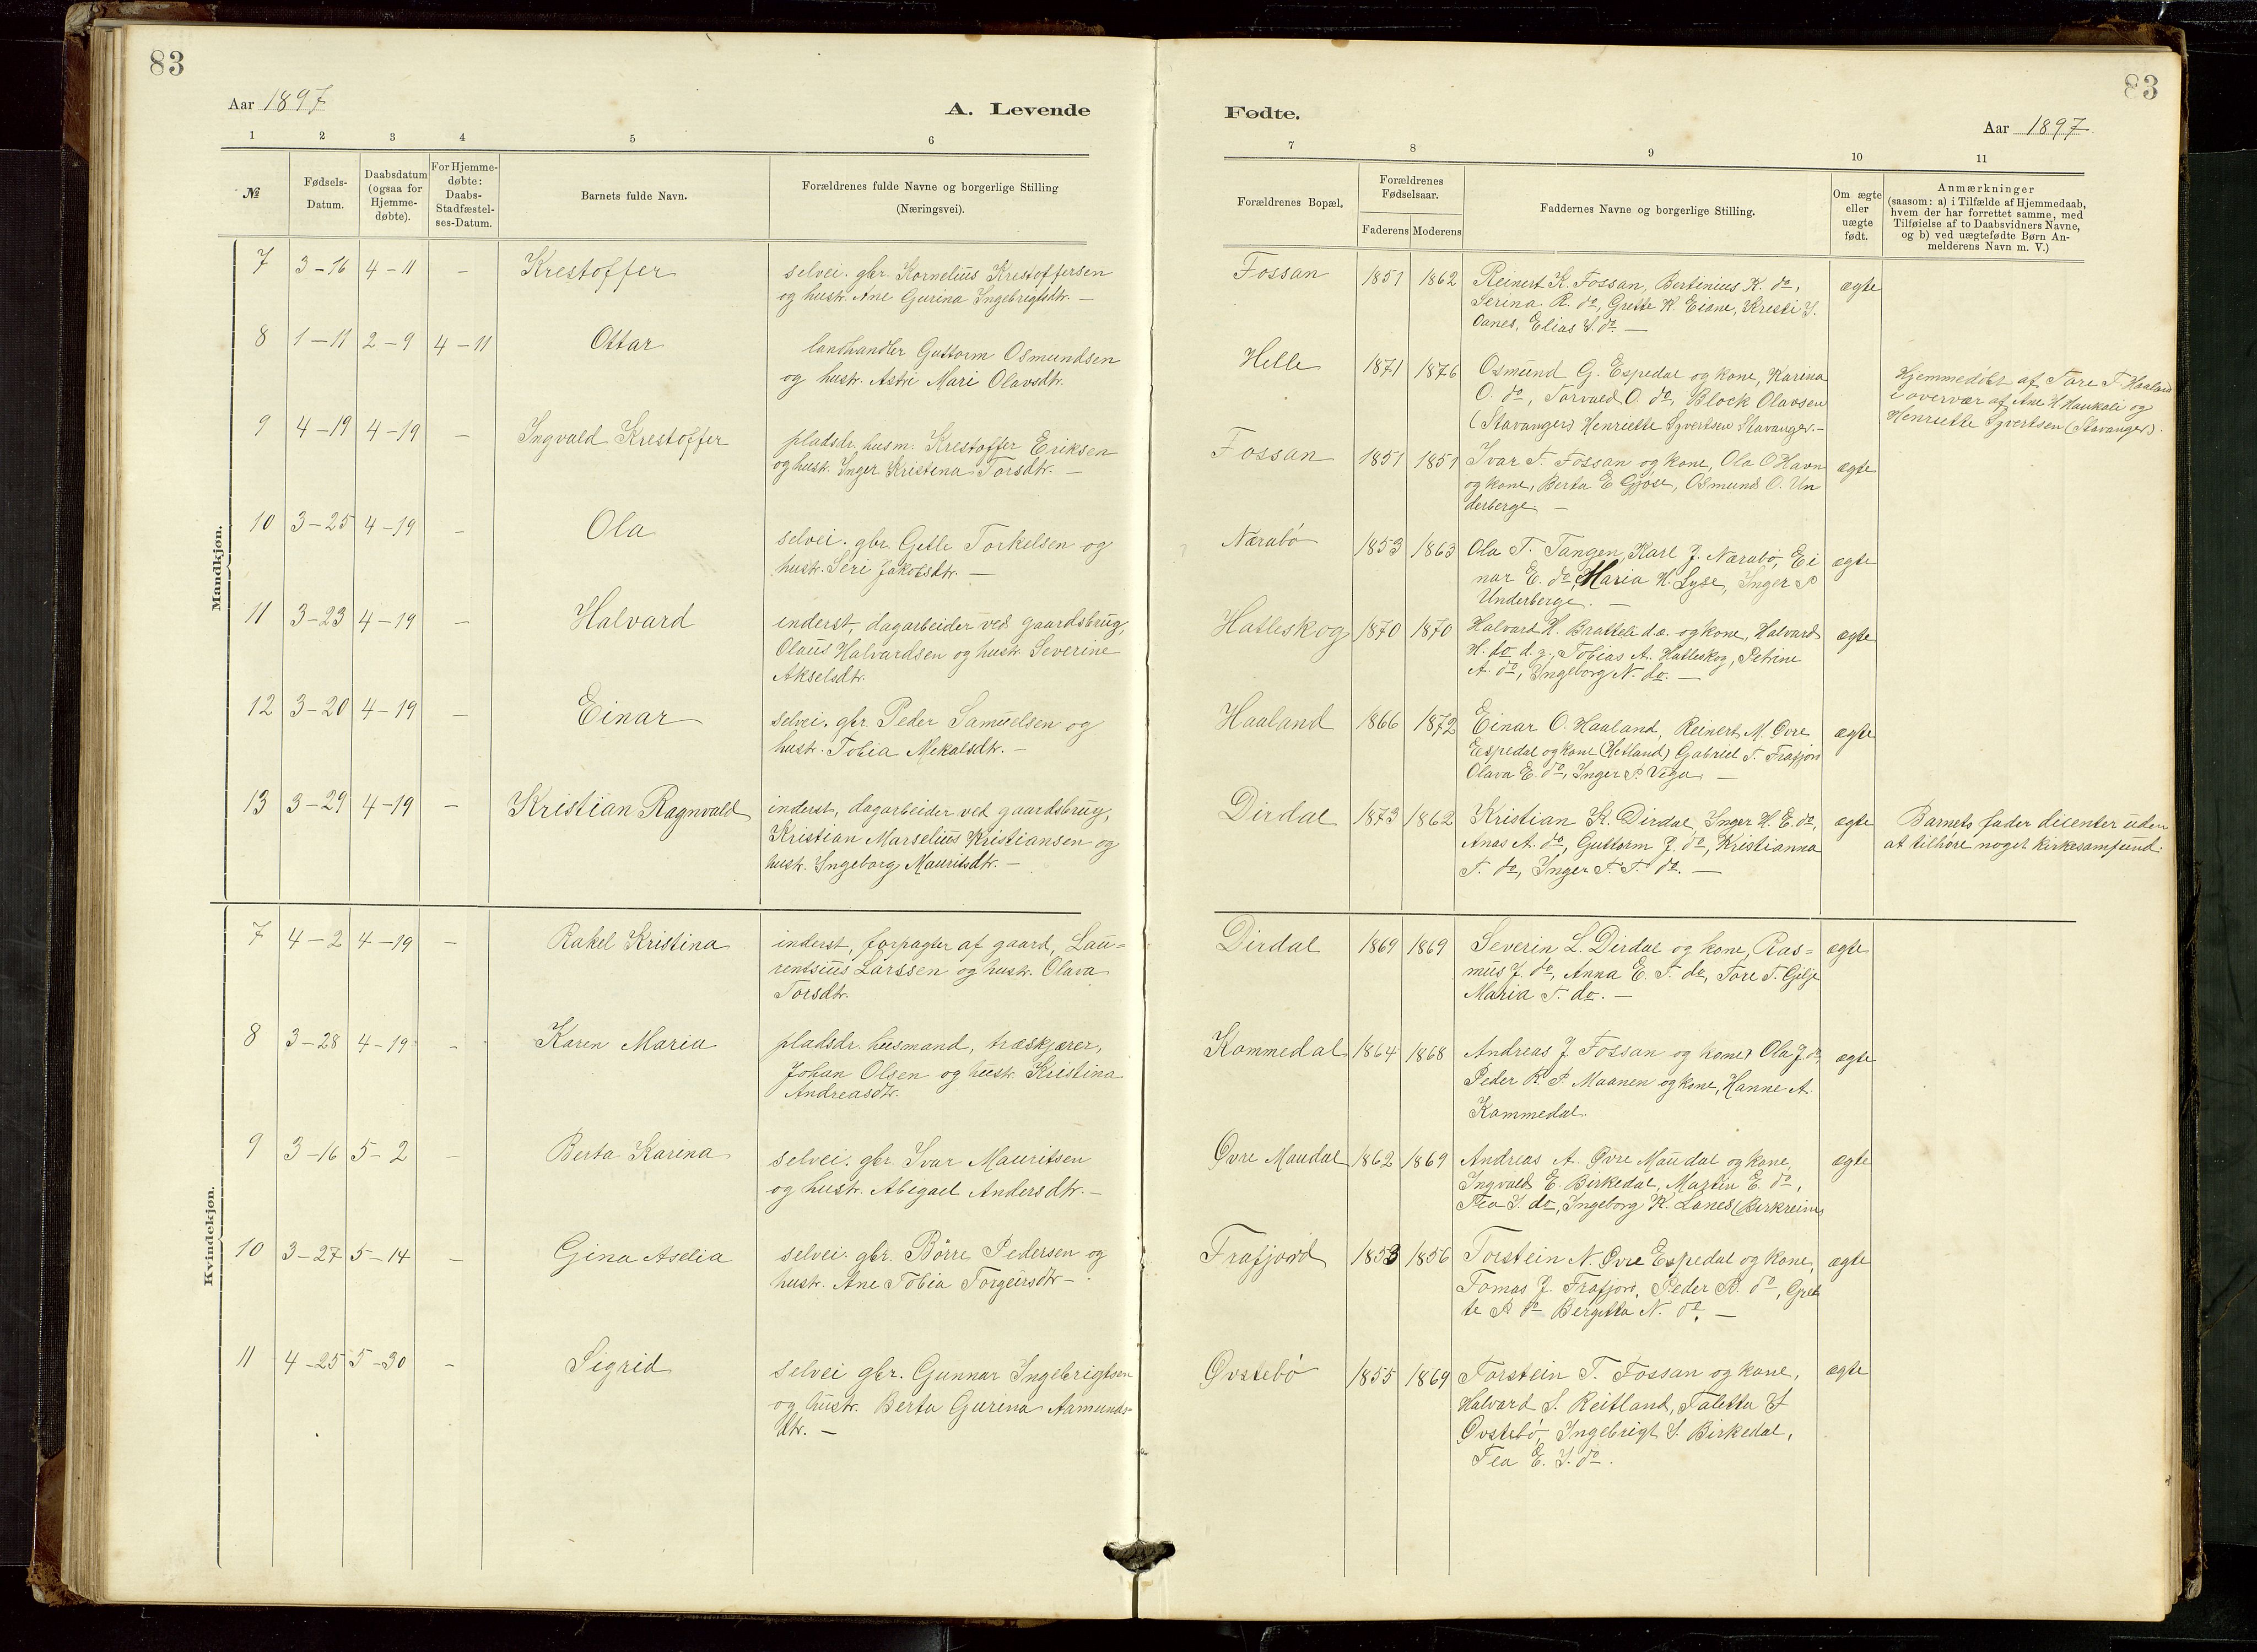 83
Aar 1897
A. Levende
1 2 3 4 5 6
№
Fødsels-
Datum.
Daabsdatum
(ogsaa for
Hjemme-
døbte).
For Hjemme-
døbte:
Daabs-
Stadfæstel-
ses-Datum.
Barnets fulde Navn.
Forældrenes fulde Navne og borgerlige Stilling
(Næringsvei).
Mandkjøn.
7 3-16 4-11 - Krestoffer
selvei. gbr. Kornelius Krestoffersen
og hustr. Ane Gurina Ingebrigtsdtr. -
8 1-11 2-9 4-11 Ottar
landhandler Guttorm Osmundsen
og hustr. Astri Mari Olavsdtr.
9 4-19 4-19 - Ingvald Krestoffer
pladsdr. husm. Krestoffer Eriksen
og hustr. Inger Kristina Torsdtr. -
10 3-25 4-19 - Ola
selvei. gbr. Getle Torkelsen og
hustr. Seri Jakobsdtr. -
11 3-23 4-19 - Halvard
inderst, dagarbeider ved gaardsbrug,
Olaus Halvardsen og hustr. Severine
Akselsdtr.
12 3-20 4-19 - Einar
selvei. gbr. Peder Samuelsen og
hustr. Tobia Mekalsdtr. -
13 3-29 4-19 - Kristian Ragnvald
inderst, dagarbeider ved gaardsbrug,
Kristian Marselius Kristiansen og
hustr. Ingeborg Mauritsdtr. -
Kvindekjøn.
7 4-2 4-19 - Rakel Kristina
inderst, forpagter af gaard, Lau-
rentsius Larssen og hustr. Olava
Torsdtr.
8 3-28 4-19 - Karen Maria
pladsdr. husmand, træskjærer,
Johan Olsen og hustr. Kristina
Andreasdtr.
9 3-16 5-2 - Berta Karina
selvei. gbr. Ivar Mauritsen
og hustr. Abigael Andersdtr. -
10 3-27 5-14 - Gina Aselia
selvei. gbr. Børre Pedersen og
hustr. Ane Tobia Torgeirsdtr -
11 4-25 5-30 - Sigrid
selvei gbr. Gunnar Ingebrigtsen
og hustr. Berta Gurina Aamunds-
dtr. -
83
Fødte.
Aar 1897.
7 8 9 10 11
Forældrenes Bopæl.
Forældrenes
Fødselsaar.
Faderens Moderens
Faddernes Navne og borgerlige Stilling.
Om ægte
eller
uægte
født.
Anmærkninger
(saasom: a) i Tilfælde af Hjemmedaab,
hvem der har forrettet samme, med
Tilføielse af to Daabsvidners Navne,
og b) ved uægtefødte Børn An-
melderens Navn m. V.)
Fossan 1851 1862 Reinert K. Fossan, Bertinius K. do, ægte
Serina R. do, Grette K. Eiane, Kresti I.
Oanes, Elias S. do. -
Helle 1871 1876 Osmund G. Espedal og kone, Karina
O. do, Torvald O. do, Block Olavsen
(Stavanger) Henriette Syvertsen Stavanger. -
Hjemmedøbt af Tore T. Haaland
i overvær af Ane H Haukali og
Henriette Syvertsen (Stavanger).
Fossan 1851 1851 Ivar T. Fossan og kone, Ola O Havn ægte
og kone, Berta E Gjøse, Osmund O. Un
derberge -
Nærabø 1853 1863 Ola T. Tangen, Karl J. Nærabø, Ei ægte
nar E. do, Maria H. Lyse, Inger P
Underberge. -
Hatleskog 1870 1870 Halvard H. Bratteli d.æ. og kone, Halvard ægte
H. do d.y., Tobias A. Hatleskog, Petrine
A. do, Ingeborg N. do. -
Haaland 1866 1872 Einar O. Haaland, Reinert M. Øvre ægte
Espedal og kone (Hetland) Gabriel T. Frafjord
Olava E. do, Inger P. Vega. -
Dirdal 1873 1862 Kristian K. Dirdal, Inger H. E. do, ægte
Anas A. do, Guttorm J. do, Kristianna
T. do, Inger T. T. do. -
Barnets fader dicenter uden
at tilhøre noget kirkesamfund.
Dirdal 1869 1869 Severin L. Dirdal og kone, Ras- ægte
mus J. do, Anna E. T. do, Tore T. Gilje
Maria T. do. -
Kommedal 1864 1868 Andreas J. Fossan og kone, Ola J. do, ægte
Peder R. P. Maanen og kone, Hanne A.
Kommedal.
Øvre Maudal 1862 1869 Andreas A. Øvre Maudal og kone, ægte
Ingvald E. Birkedal, Martin E. do,
Tea I. do, Ingeborg K. Lanes (Birkreim)
Frafjord 1853 1856 Torstein N. Øvre Espedal og kone, ægte
Tomas J. Frafjord, Peder B. do, Gret
te P. do Bergitta N. do. -
Øvstebø 1855 1869 Torstein T. Fossan og kone, ægte
Halvard S. Reitland, Taletta I
Øvstebø, Ingebrigt I. Birkedal,
Tea E. I. do.